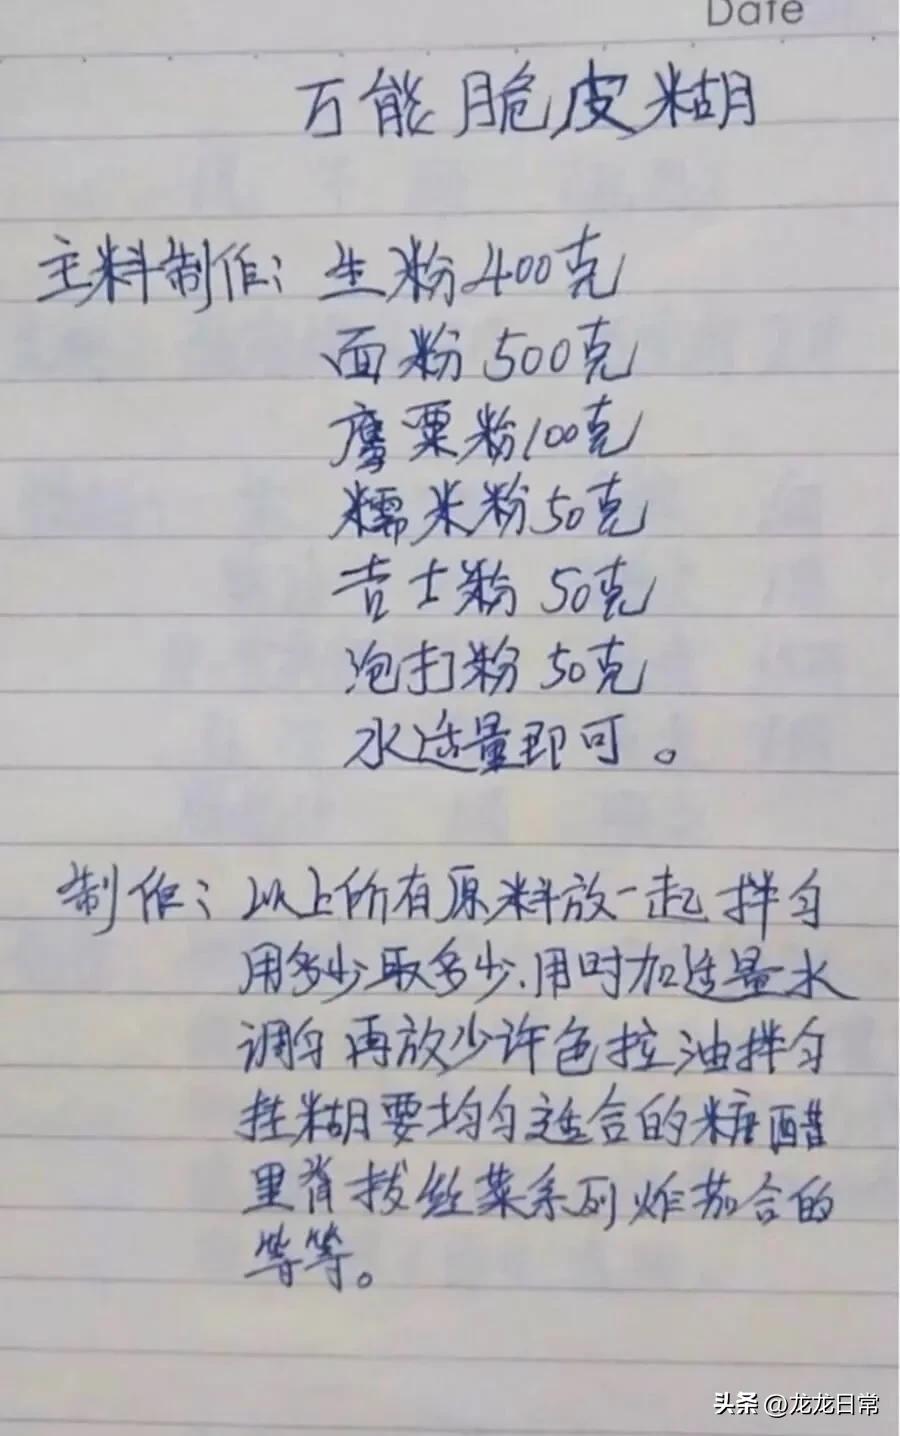 Date
万能脆皮糊
主料制作: 生粉400克
面粉500克
鹰粟粉100克
糯米粉50克
吉士粉50克
泡打粉50克
水适量即可。
制作: 以上所有原料放一起拌匀
用多少取多少.用时加适量水
调匀再放少许色拉油拌匀
挂糊要均匀适合的糖醋
里脊拔丝菜系列炸茄合的
等等。
头条 @龙龙日常